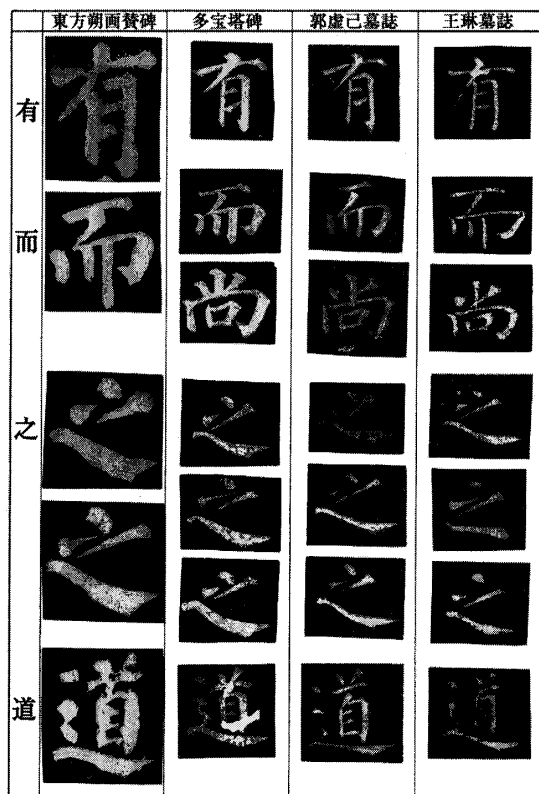 東方朔画賛碑 多宝塔碑 郭虚己墓誌 王琳墓誌
有 有 有 有 有
而 而 而 而 而
尚 尚 尚
之 之 之 之 之
之 之 之 之
之 之 之
道 道 道 道 道